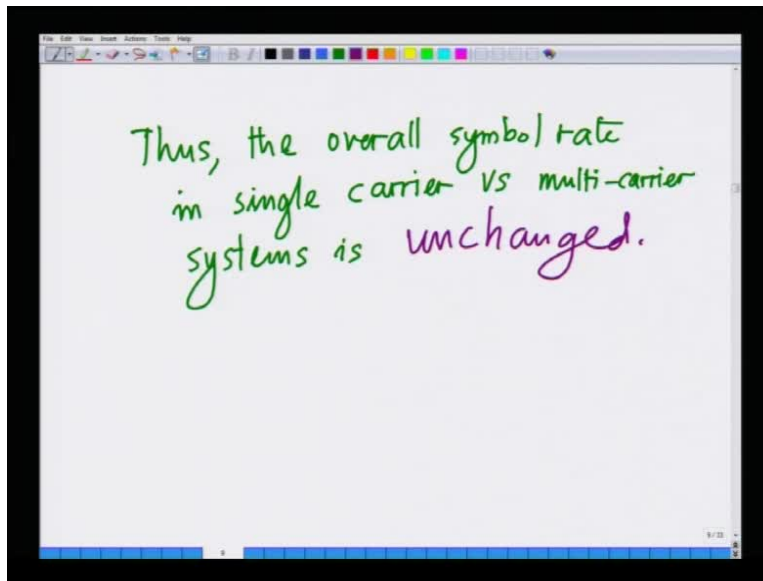 File Edit View Insert Actions Tools Help
B I
Thus, the overall symbol rate
in single carrier vs multi-carrier
systems is unchanged.
9